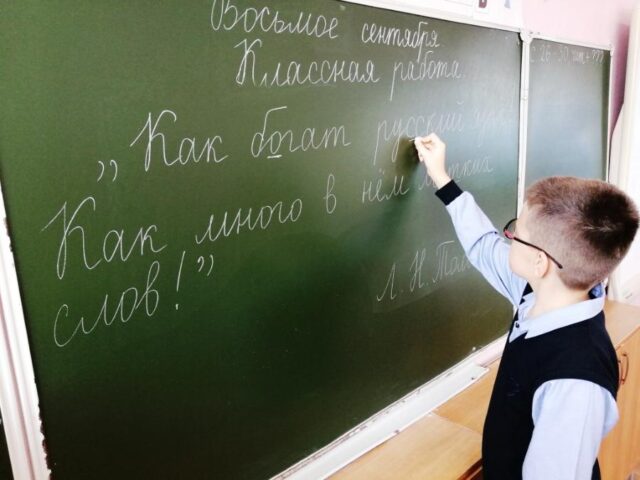 Восьмое сентября
Классная работа.
„Как богат русский
Как много в нём метких
слов!”
Л. Н.